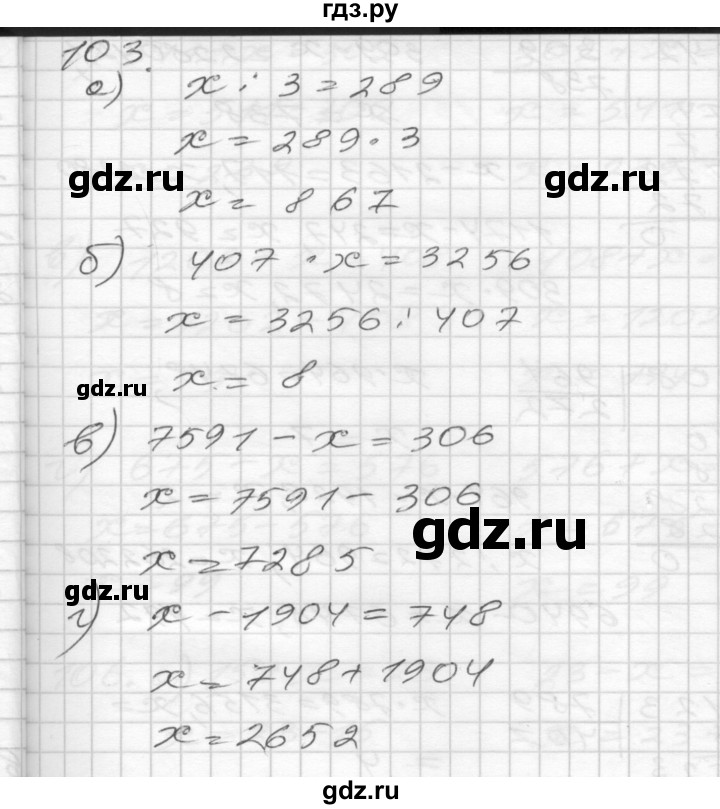 гдз.ру
103.
а) x : 3 = 289
x = 289 · 3
gdz.ru gdz.ru
x = 867
б) 407 · x = 3256
x = 3256 : 407
gdz.ru
x = 8
в) 7591 - x = 306
x = 7591 - 306
gdz.ru
x = 7285
gdz.ru
г) x - 1904 = 748
x = 748 + 1904
x = 2652
gdz.ru